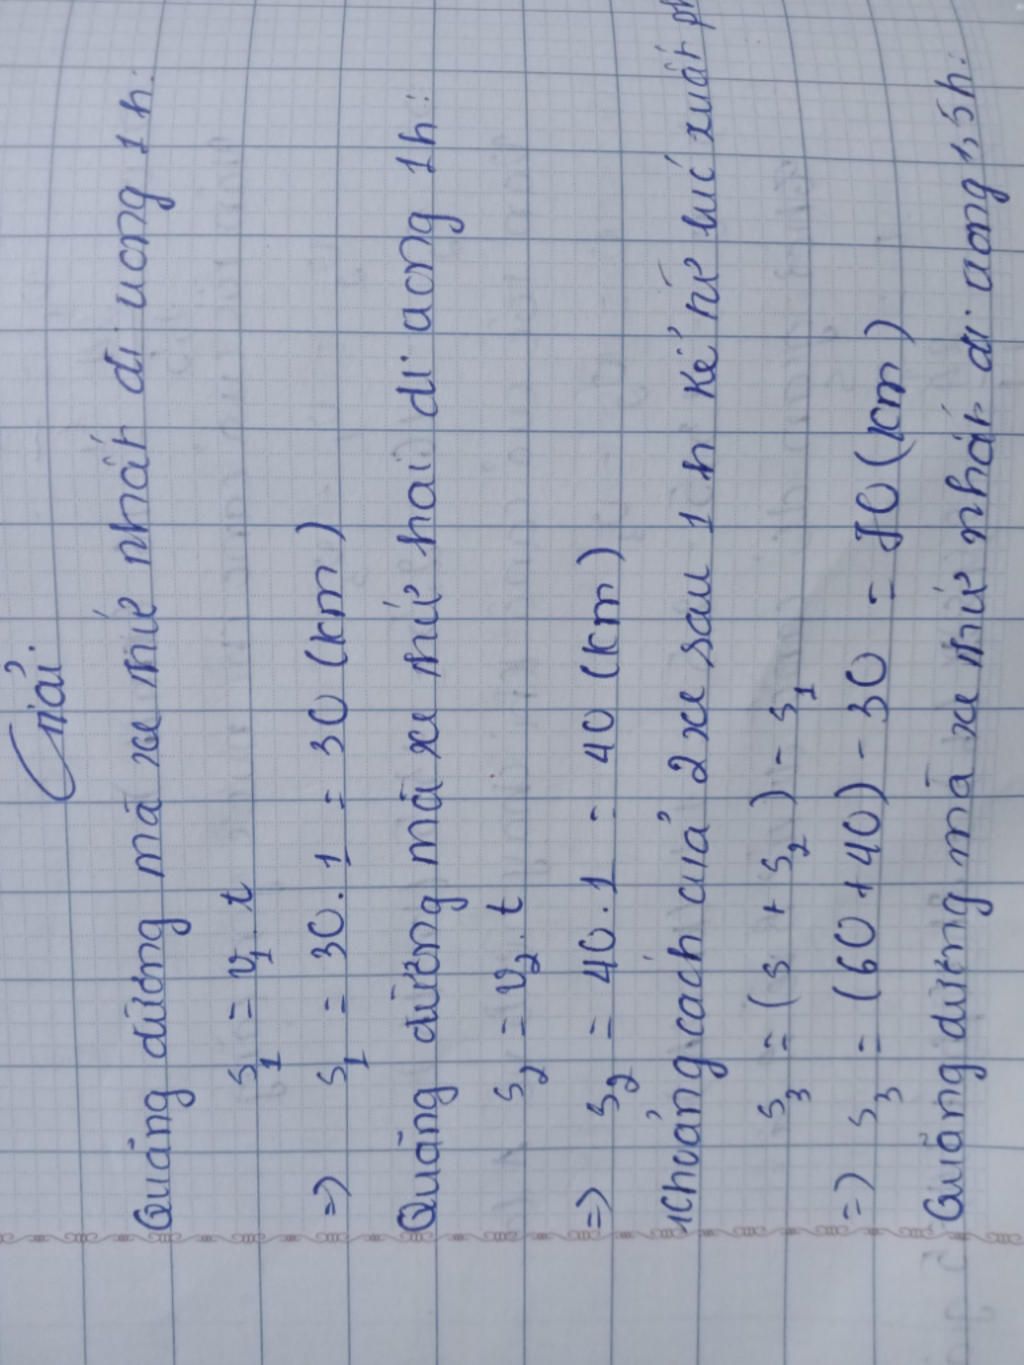 Giải:
Quãng đường mà xe thứ nhất đi trong 1h:
s₁ = v₁.t
=> s₁ = 30.1 = 30 (km)
Quãng đường mà xe thứ hai đi trong 1h:
s₂ = v₂.t
=> s₂ = 40.1 = 40 (km)
Khoảng cách của 2 xe sau 1h kể từ lúc xuất
s₃ = (s + s₂) - s₁
=> s₃ = (60+40) - 30 = 70 (km)
Quãng đường mà xe thứ nhất đi trong 1,5h: